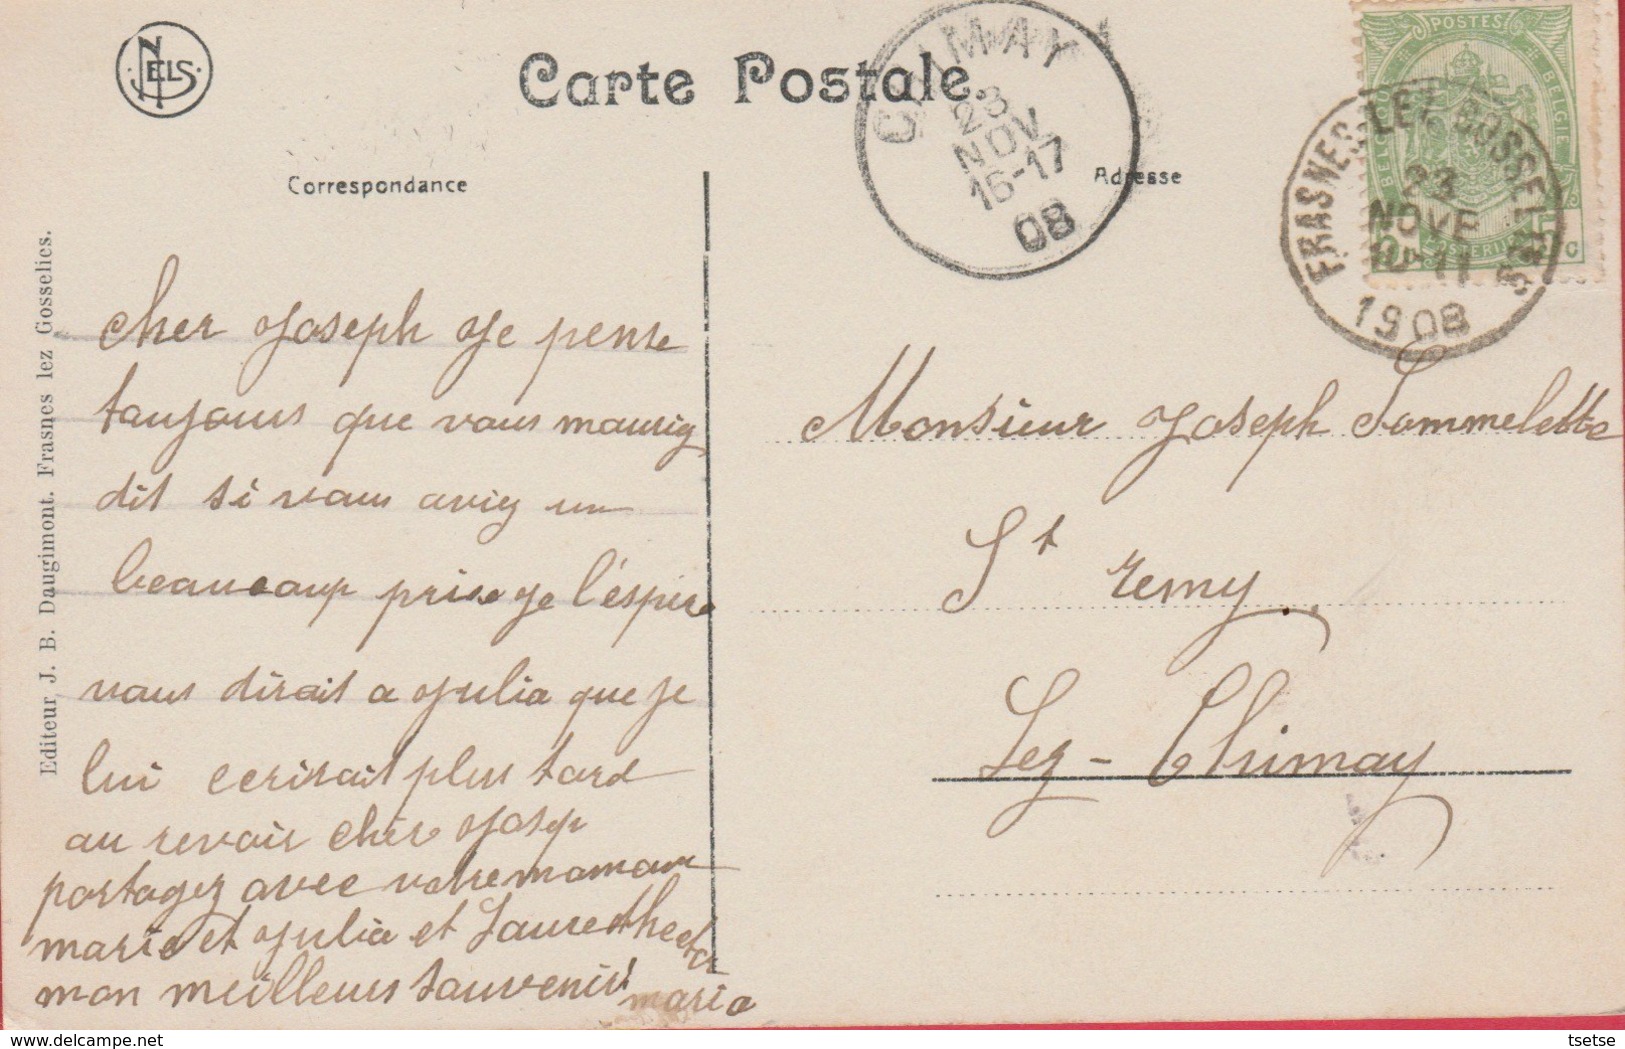 NELS
Carte Postale.
CHIMAY
23
NOV
16-17
08
POSTES
BELGIQUE
BELGIE
FRASNES-LEZ-GOSSELIES
23
NOVE
10-11
1908
Correspondance
Adresse
Editeur J. B. Daugimont. Frasnes lez Gosselies.
cher Joseph Je pense
toujours que vous mauriez
dit si vous aviez un
beaucoup prise je l'éspére
vous dirait a Julia que je
lui ecrirait plus tard
au revoir cher Josep
partagez avec votre maman
marie et Julia et Laure
mon meilleurs souvenir
maria
Monsieur Joseph Sommelette
St remy
Lez - Chimay
tsetse